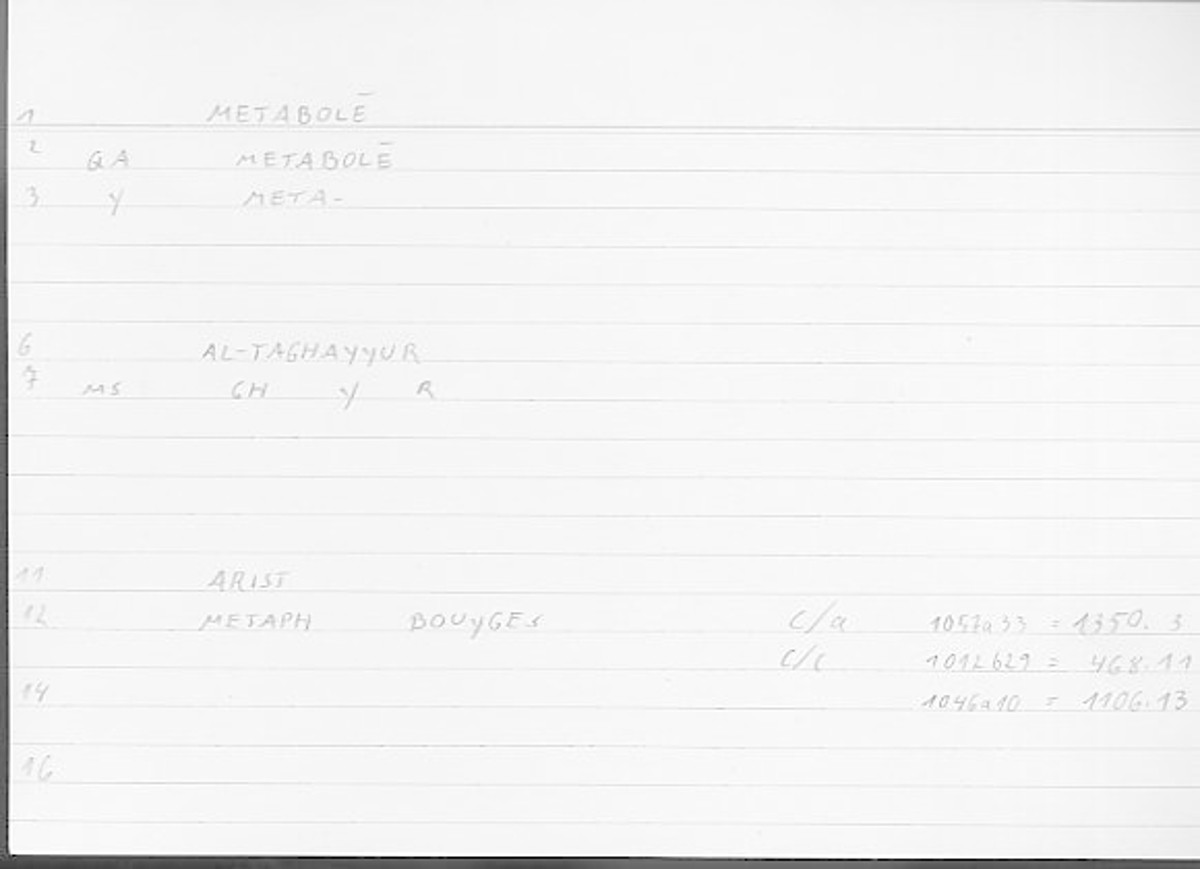 1 METABOLĒ
2 GA METABOLĒ
3 Y META-
6 AL-TAGHAYYUR
7 MS GH Y R
11 ARIST
12 METAPH BOUYGES C/a 1057a33 = 1350.3
C/c 1012b29 = 468.11
14 1046a10 = 1106.13
16